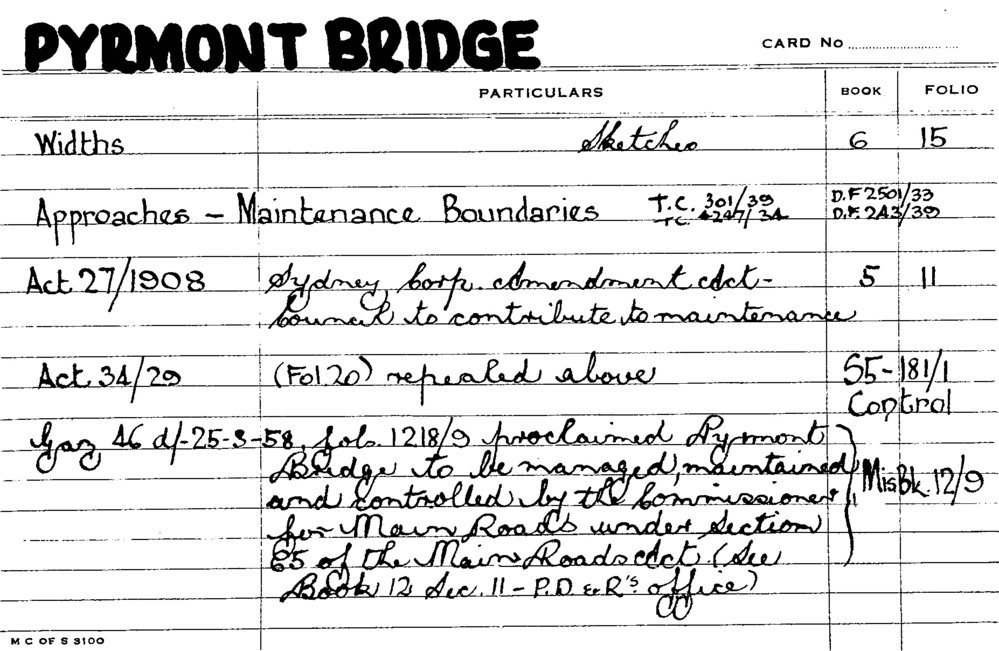 PYRMONT BRIDGE
CARD No
PARTICULARS BOOK FOLIO
Widths Sketches 6 15
Approaches - Maintenance Boundaries T.C. 301/39 D.F 2501/33
T.C. 4247/34 D.F. 243/39
Act 27/1908 Sydney Corp. Amendment Act - 5 11
Council to contribute to maintenance
Act 34/29 (Fol 20) repealed above S5-181/1
Control
Gaz 46 d/-25-3-58, fols. 1218/9 proclaimed Pyrmont
Bridge to be managed, maintained
and controlled by the Commissioner Mis Bk. 12/9
for Main Roads under Section
65 of the Main Roads Act (See
Book 12 Sec. 11 - P.D. & R's office)
M C OF S 3100